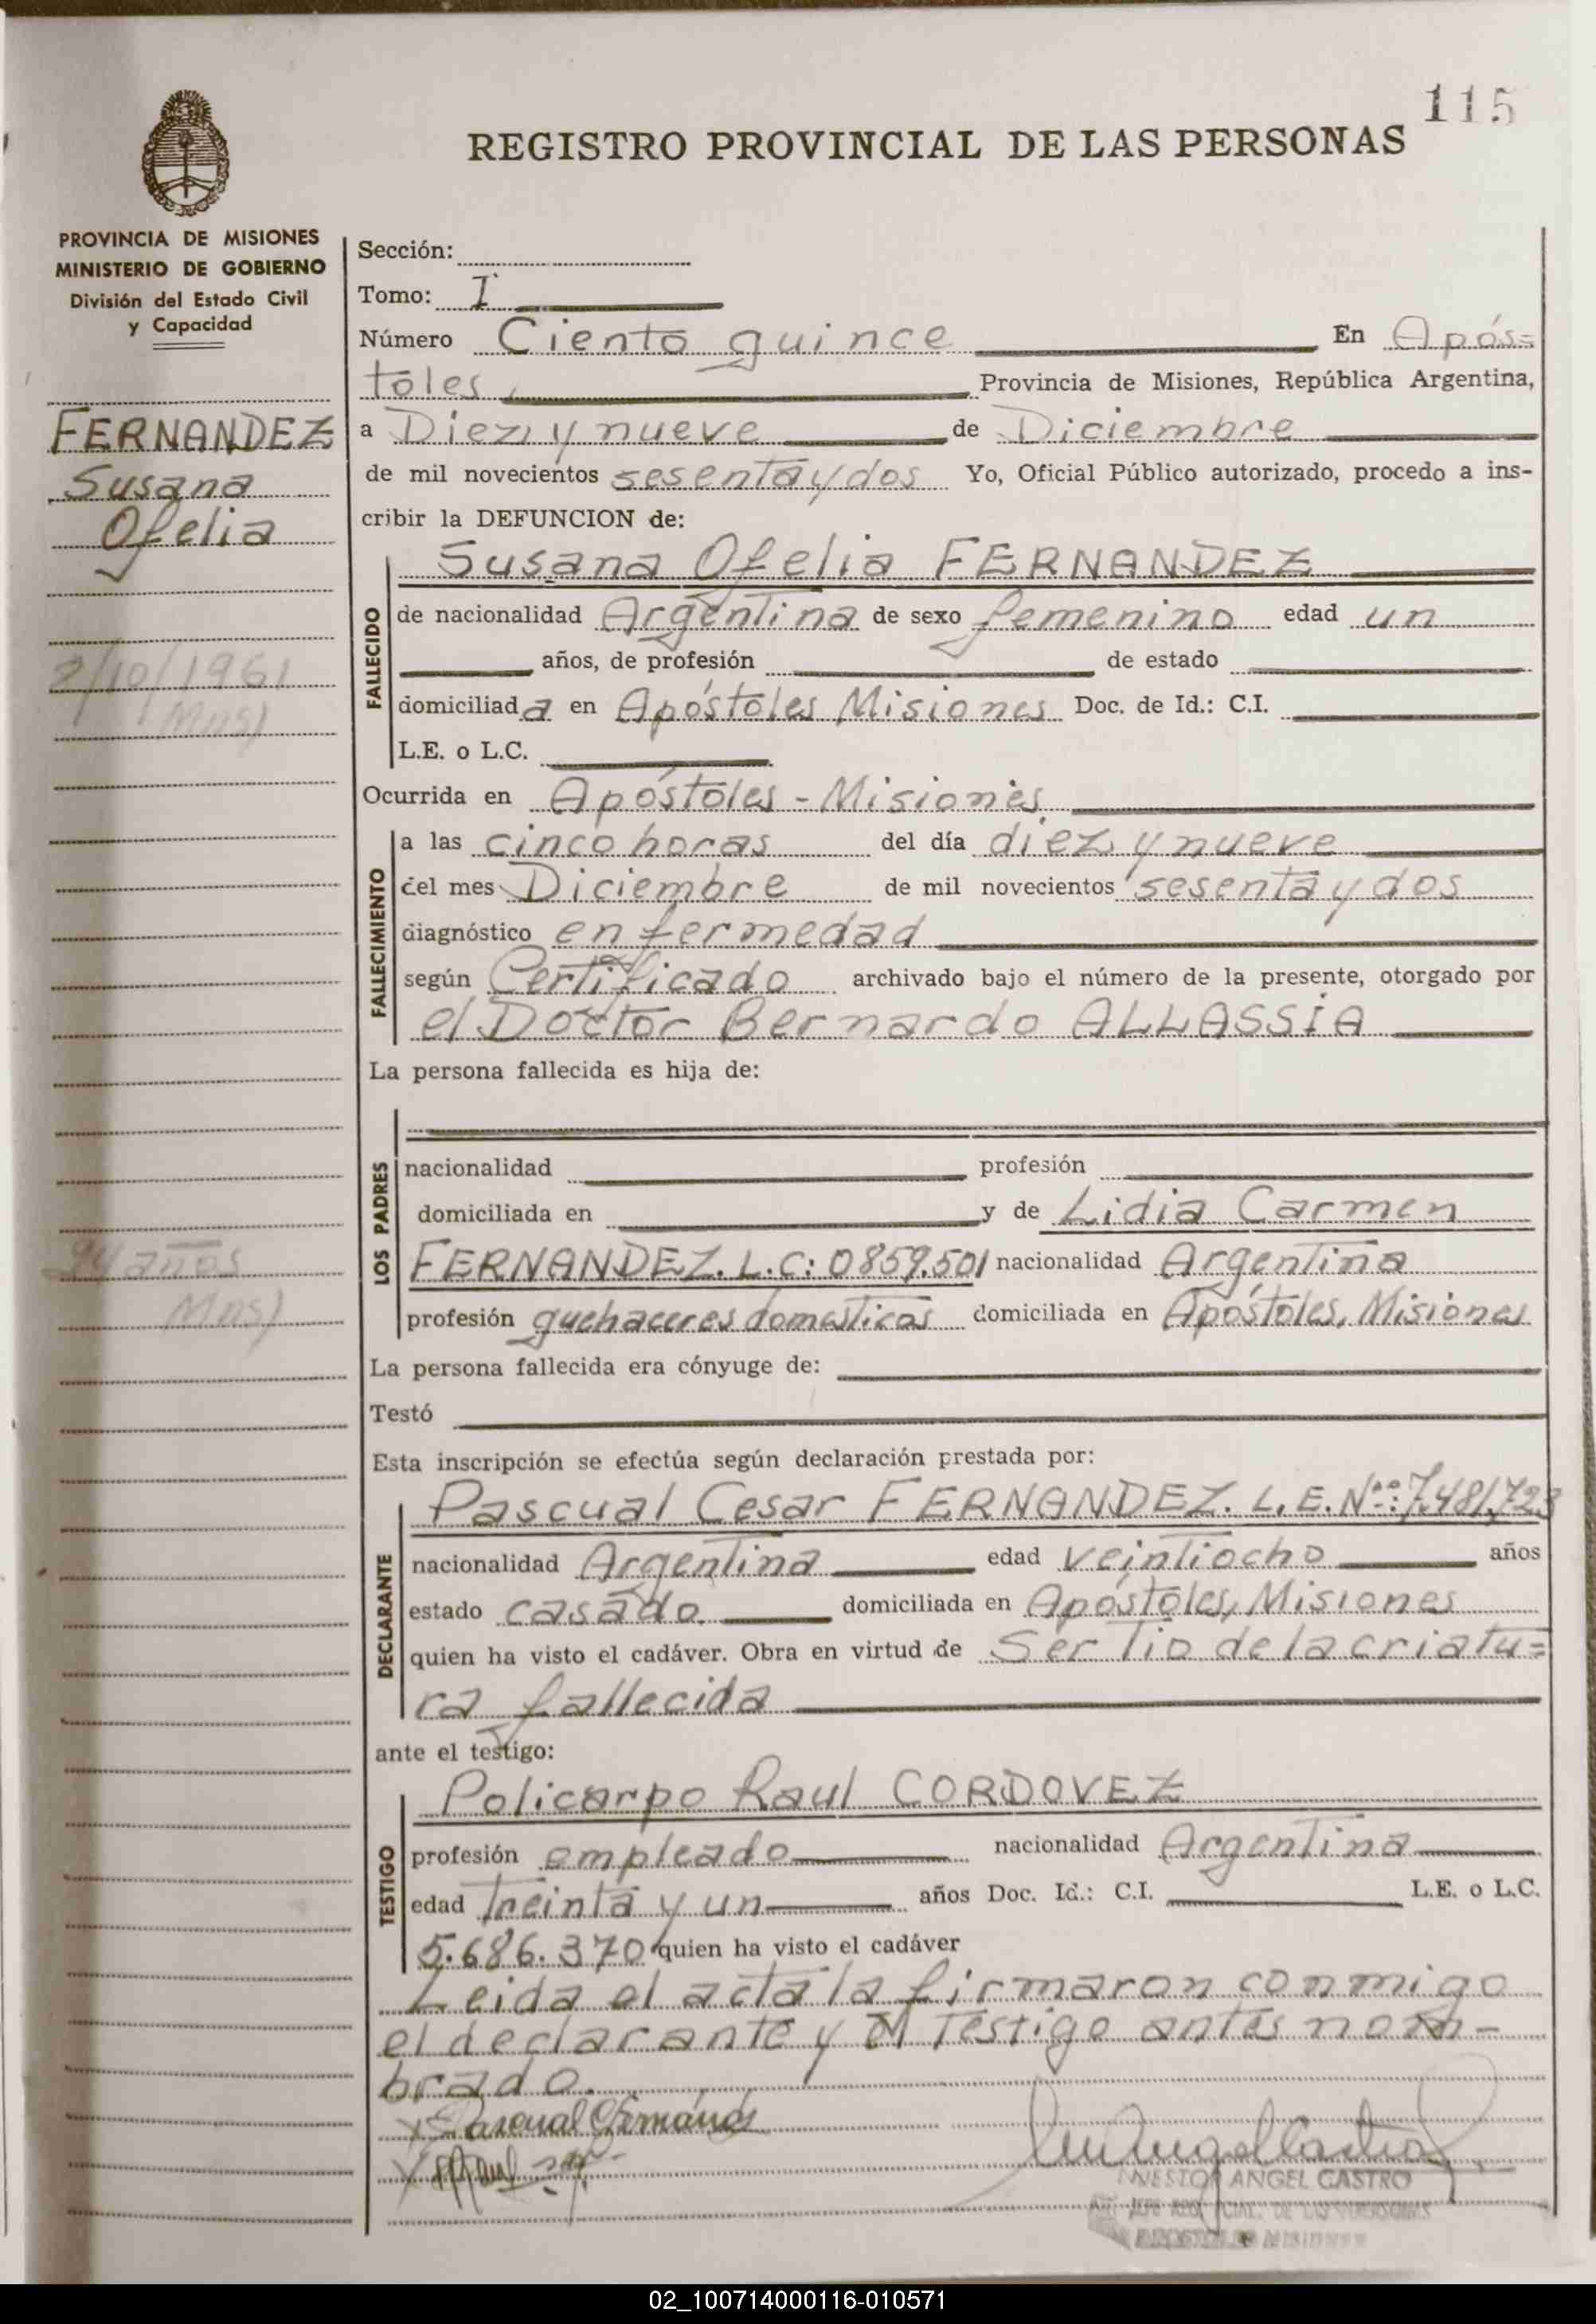 115
REGISTRO PROVINCIAL DE LAS PERSONAS
PROVINCIA DE MISIONES
MINISTERIO DE GOBIERNO
División del Estado Civil
y Capacidad
FERNANDEZ
Susana
Ofelia
2/10/1961
Sección:
Tomo: I
Número Ciento quince En Após=
toles, Provincia de Misiones, República Argentina,
a Diez y nueve de Diciembre
de mil novecientos sesenta y dos Yo, Oficial Público autorizado, procedo a ins-
cribir la DEFUNCION de:
FALLECIDO
Susana Ofelia FERNANDEZ
de nacionalidad Argentina de sexo femenino edad un
años, de profesión de estado
domiciliada en Apóstoles Misiones Doc. de Id.: C.I.
L.E. o L.C.
Ocurrida en Apóstoles - Misiones
FALLECIMIENTO
a las cinco horas del día diez y nueve
del mes Diciembre de mil novecientos sesenta y dos
diagnóstico enfermedad
según Certificado archivado bajo el número de la presente, otorgado por
el Doctor Bernardo ALLASSIA
La persona fallecida es hija de:
LOS PADRES
nacionalidad profesión
domiciliada en y de Lidia Carmen
FERNANDEZ. L.C: 0859.501 nacionalidad Argentina
profesión quehaceres domesticos domiciliada en Apóstoles, Misiones
años
La persona fallecida era cónyuge de:
Testó
Esta inscripción se efectúa según declaración prestada por:
DECLARANTE
Pascual Cesar FERNANDEZ. L.E. Nº: 7.481.723
nacionalidad Argentina edad veintiocho años
estado casado domiciliada en Apóstoles, Misiones
quien ha visto el cadáver. Obra en virtud de Ser Tio de la criatu=
ra fallecida
ante el testigo:
TESTIGO
Policarpo Raul CORDOVEZ
profesión empleado nacionalidad Argentina
edad Treinta y un años Doc. Id.: C.I. L.E. o L.C.
5.686.370 quien ha visto el cadáver
Leida el acta la firmaron conmigo
el declarante y el Testigo antes nom-
brado.
Pascual Fernández
NESTOR ANGEL CASTRO
02_100714000116-010571